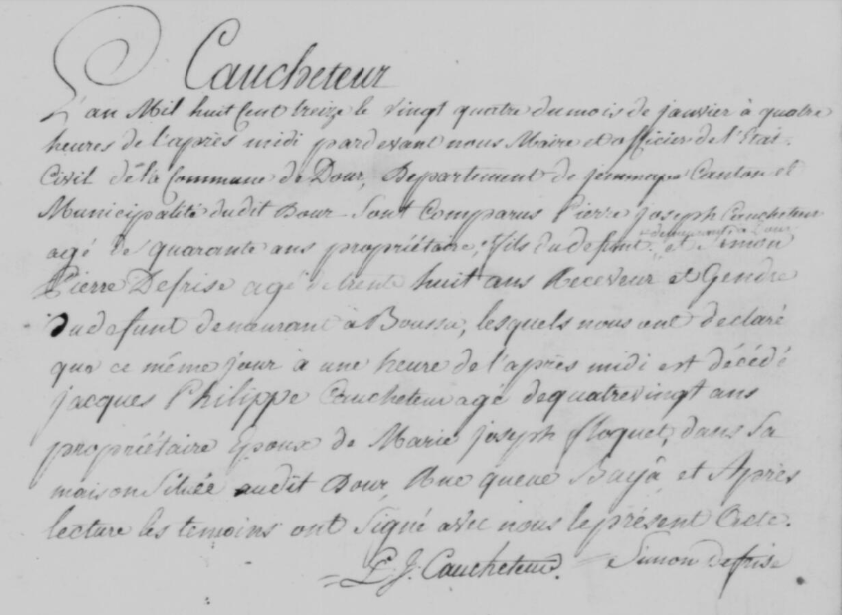 Caucheteur
L'an Mil huit Cent treize le vingt quatre du mois de janvier à quatre
heures de l'après midi pardevant nous Maire et officier de l'Etat
Civil de la Commune de Dour, Département de jemmape Canton et
Municipalité dudit Dour sont Comparus Pierre joseph Caucheteur
agé de quarante ans propriétaire, fils du defunt demeurant à Dour et Simon
Pierre Defrise agé de trente huit ans Receveur et Gendre
du defunt demeurant à Boussu, lesquels nous ont declaré
que ce même jour à une heure de l'après midi est décédé
jacques Philippe Caucheteur agé de quatrevingt ans
propriétaire Epoux de Marie joseph floquet, dans sa
maison Située audit Dour, Rue queue et Après
lecture les temoins ont Signé avec nous le présent Acte.
P. J. Caucheteur. Simon defrise